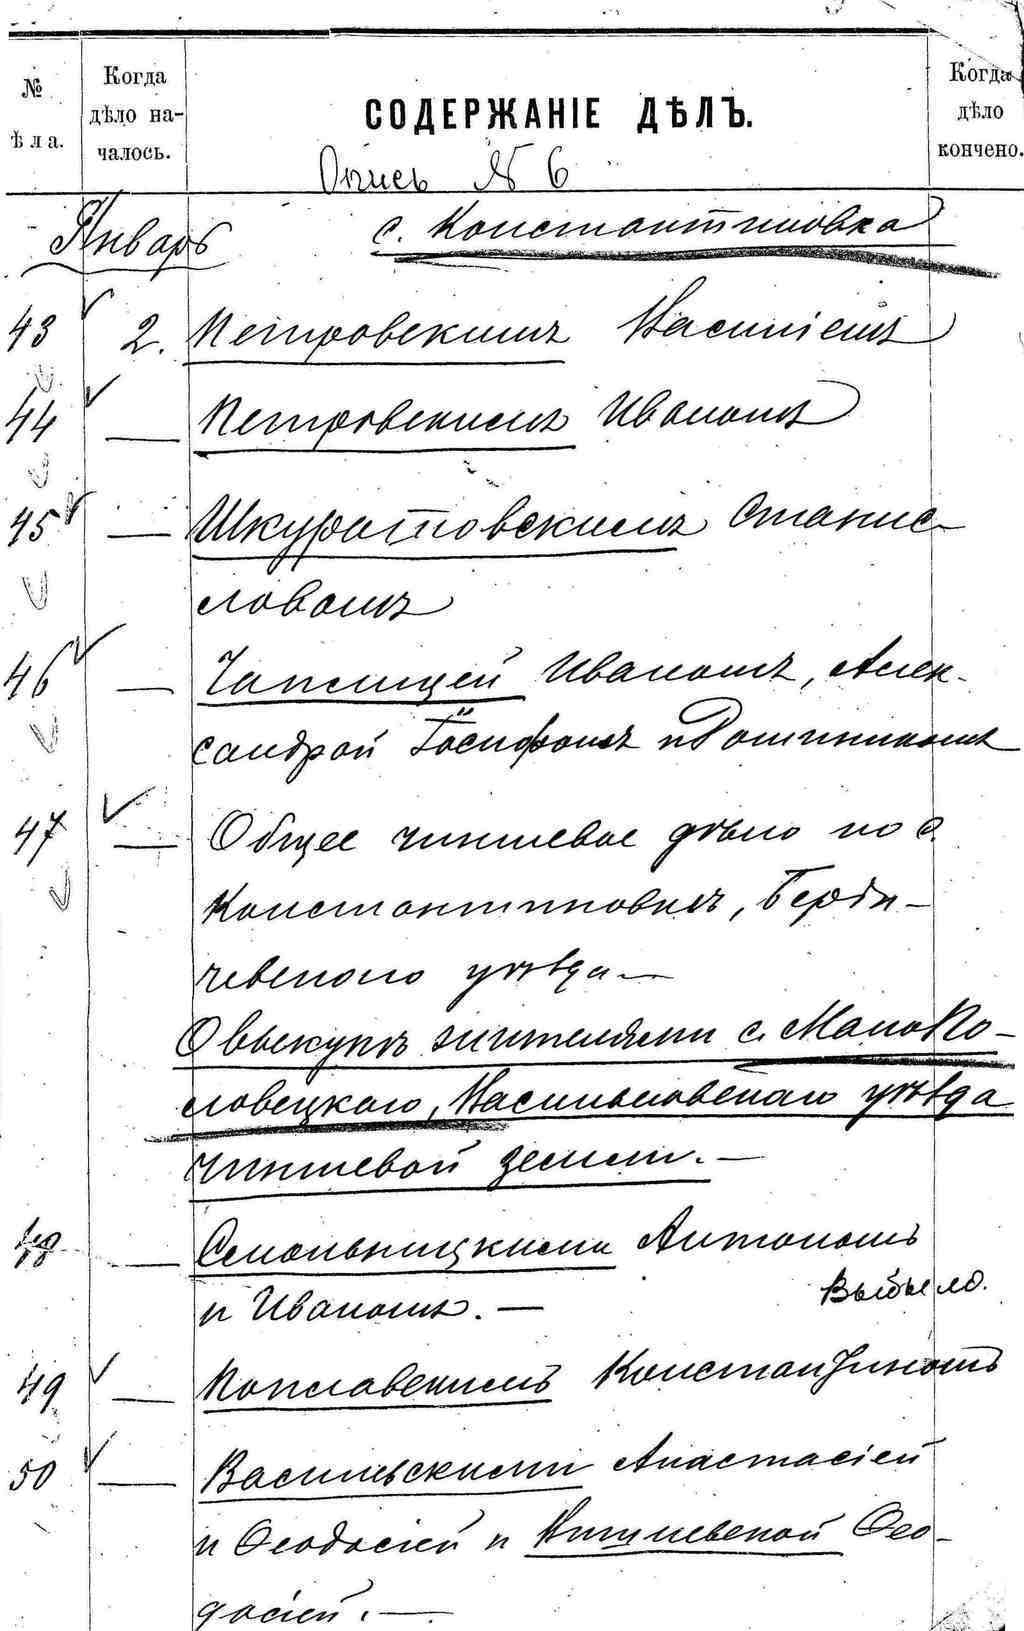 № ѣла.
Когда дѣло на-чалось.
СОДЕРЖАНІЕ ДѢЛЪ.
Когда дѣло кончено.
Опись № 6
Январь
с. Константиновка
43 2. Петровскимъ Василіемъ
44 — Петровскимъ Иваномъ
45 — Шкуратовскимъ Станис-
лавомъ
46 — Чаплицей Иваномъ, Алек-
сандрой Іосифомъ и
47 — Общее чиншевое дѣло по с.
Константиновкѣ, Берди-
чевскаго уѣзда —
О выкупѣ жителями с. Мало По-
ловецкаго, Васильковскаго уѣзда
чиншевой земли. —
48 — Смольницкими Антономъ
и Иваномъ. —
Выбыло.
49 — Поплавскимъ Константиномъ
50 — Васильскими Анастасіей
и Ѳеодосіей и Ѳео-
досіей. —